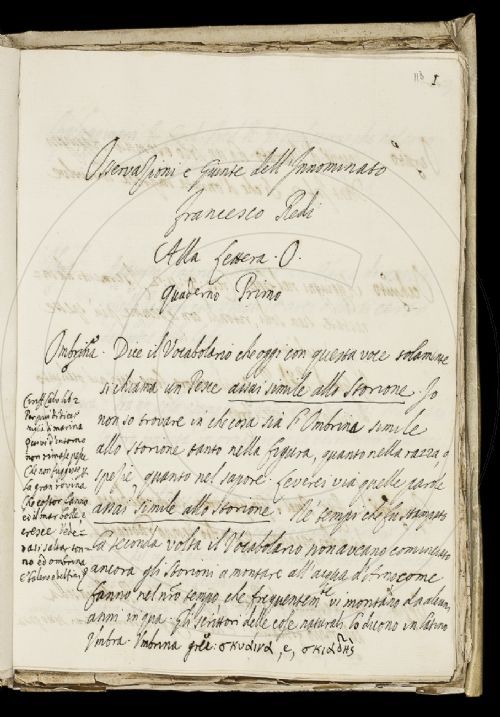 113 1
Osservazioni e Giunte dell'Innominato
Francesco Redi
Alla Lettera. O.
Quaderno Primo
Ombrina. Dice il Vocabolario che oggi con questa voce solamente
si chiama un Pesce assai simile allo Storione. Io
non so trovare in che cosa sia l'Ombrina simile
allo storione tanto nella figura, quanto nella razza, o
spezie, quanto nel sapore. Leverei via quelle parole
assai simile allo Storione. Ne tempi che fu stampato
la seconda volta il Vocabolario non aveano cominciato
ancora gli Storioni a montare all'acqua d'Arno come
fanno nel nro tempo che frequentemte vi montano da alcuni
anni in qua. Gli scrittori delle cose naturali la dicono in latino
Umbra. Umbrina grec. σκιαινα, e, σκιαδης
Ciriff. Calv. lib. 2
Per più di dieci
miglia di marina
Quivi d'intorno
non rimase pesce
Che non fuggisse
la gran rovina
e il mar bolle e
cresce
no ed ombrina